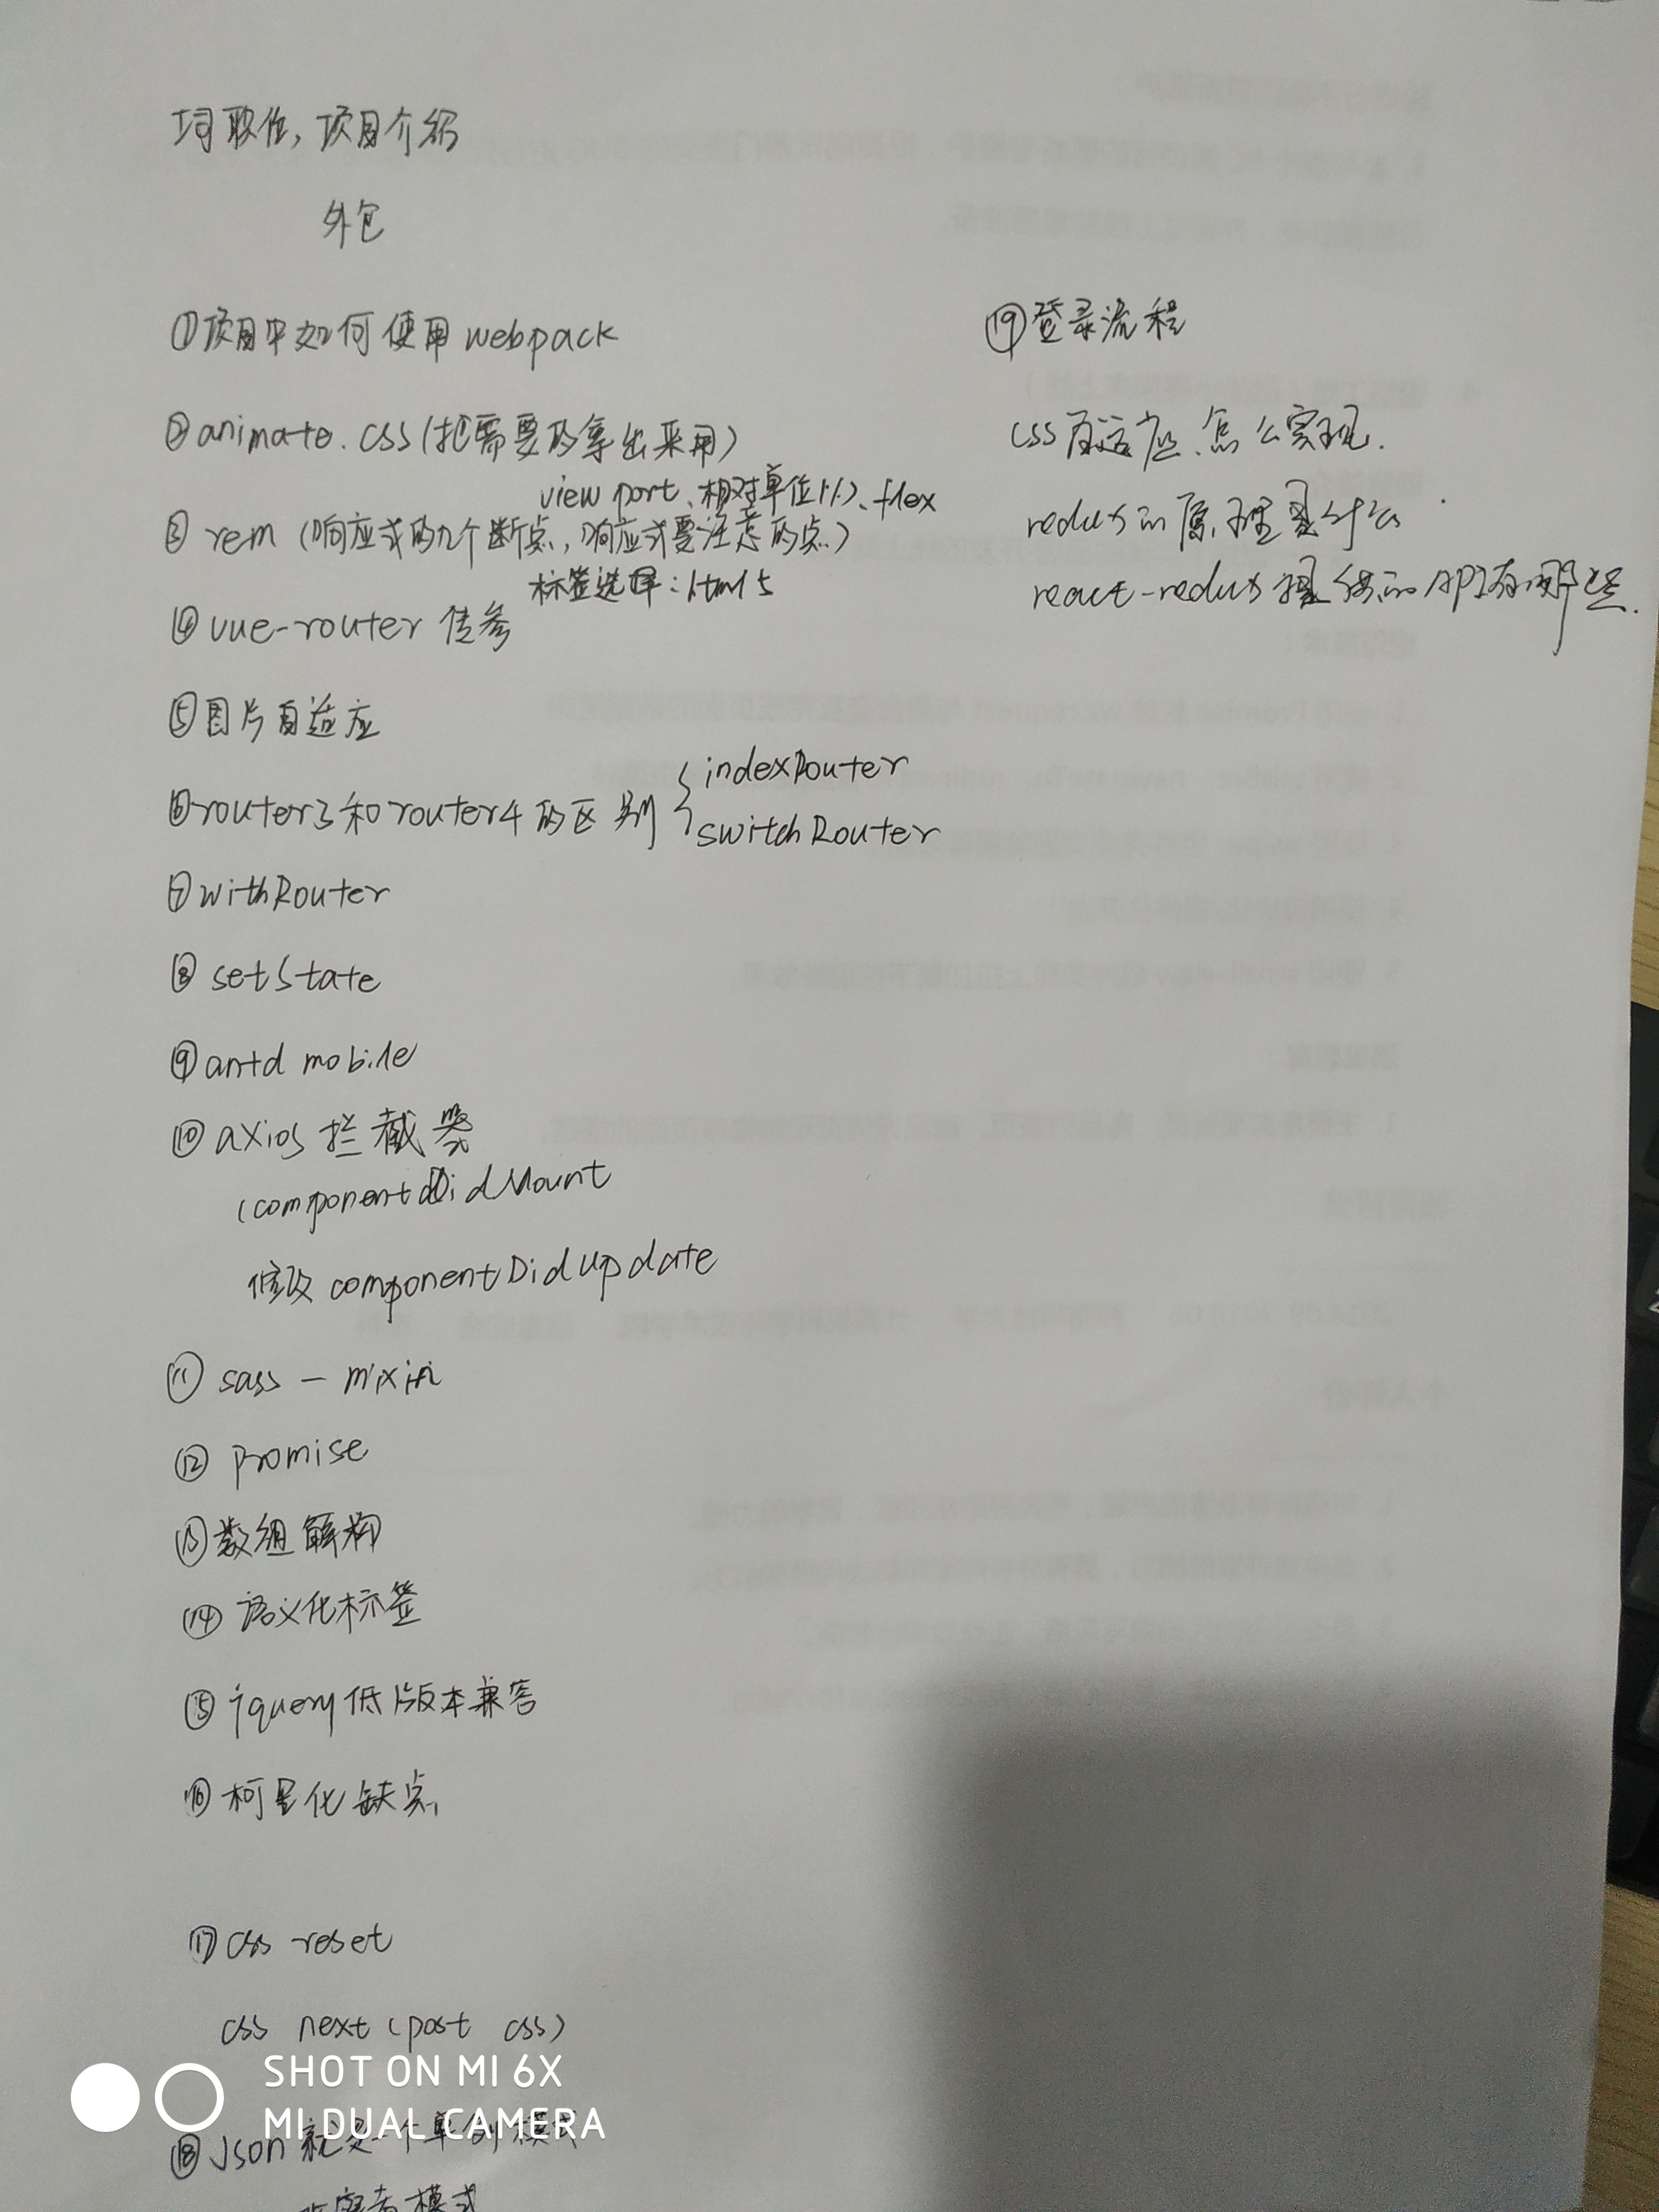 职位，项目介绍
外包
①项目中如何使用webpack
②animate.css(把需要的拿出来用)
view port、相对单位(%)、flex
③rem（响应式的几个断点，响应式要注意的点）
标签选择：html5
④vue-router 传参
⑤图片自适应
⑥router3和router4的区别 { indexRouter
switchRouter
⑦withRouter
⑧setState
⑨antd mobile
⑩axios 拦截器
(componentDidMount
修改 componentDidUpdate
⑪ sass — mixin
⑫ promise
⑬数组解构
⑭ 语义化标签
⑮ jquery低版本兼容
⑯柯里化缺点
⑰css reset
css next (post css)
⑱Json就是一个单例模式
观察者模式
⑲登录流程
css自适应、怎么实现.
redux的原理是什么
react-redux提供的API有哪些.
SHOT ON MI 6X
MI DUAL CAMERA